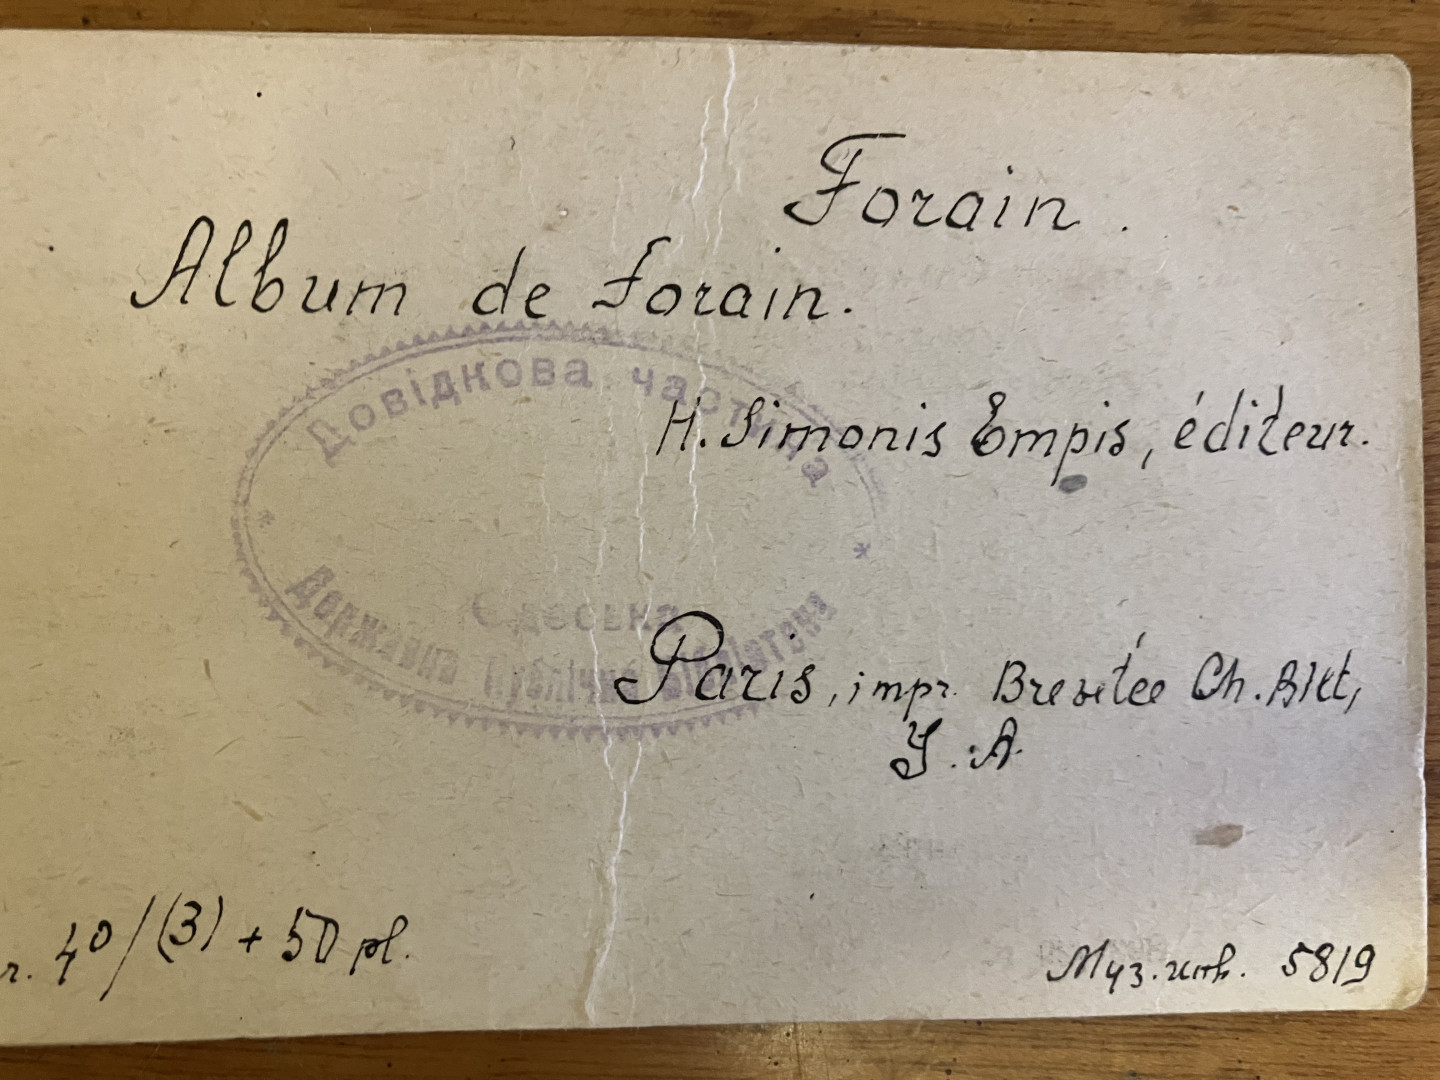 Forain.
Album de Forain.
Довідкова частина
H. Simonis Empis, éditeur.
Одеська
Державна Публічна Бібліотека
Paris, impr. Brevetée Ch. Blot,
S. A.
r. 4º/(3) + 50 pl.
Муз. инв. 5819